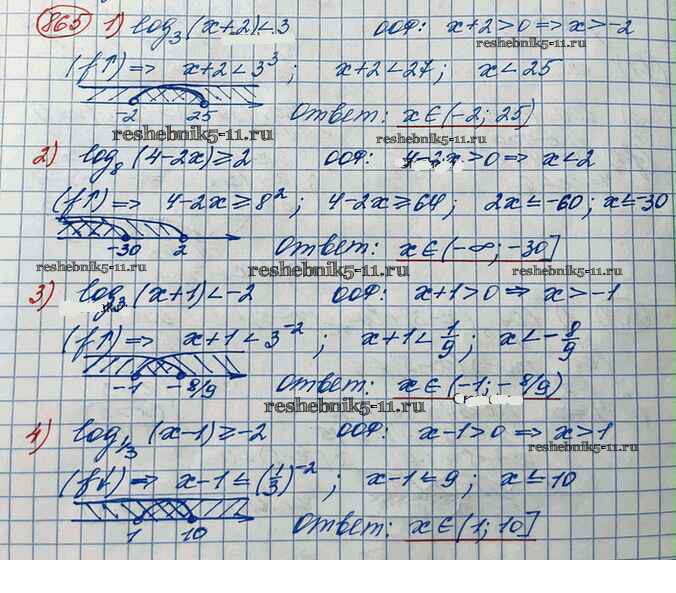 865 1) log₃(x+2)<3 ООФ: x+2>0 => x>-2
reshebnik5-11.ru
(f↑) => x+2<3³; x+2<27; x<25
-2 25 Ответ: x∈(-2; 25)
reshebnik5-11.ru reshebnik5-11.ru
2) log₈(4-2x)≥2 ООФ: 4-2x>0 => x<2
(f↑) => 4-2x≥8²; 4-2x≥64; 2x≤-60; x≤-30
-30 2 Ответ: x∈(-∞; -30]
reshebnik5-11.ru reshebnik5-11.ru reshebnik5-11.ru
3) log₃(x+1)<-2 ООФ: x+1>0 => x>-1
(f↑) => x+1<3⁻²; x+1<1/9; x<-8/9
-1 -8/9 Ответ: x∈(-1; -8/9)
reshebnik5-11.ru
4) log₁/₃(x-1)≥-2 ООФ: x-1>0 => x>1
reshebnik5-11.ru
(f↓) => x-1≤(1/3)⁻²; x-1≤9; x≤10
1 10 Ответ: x∈(1; 10]
reshebnik5-11.ru